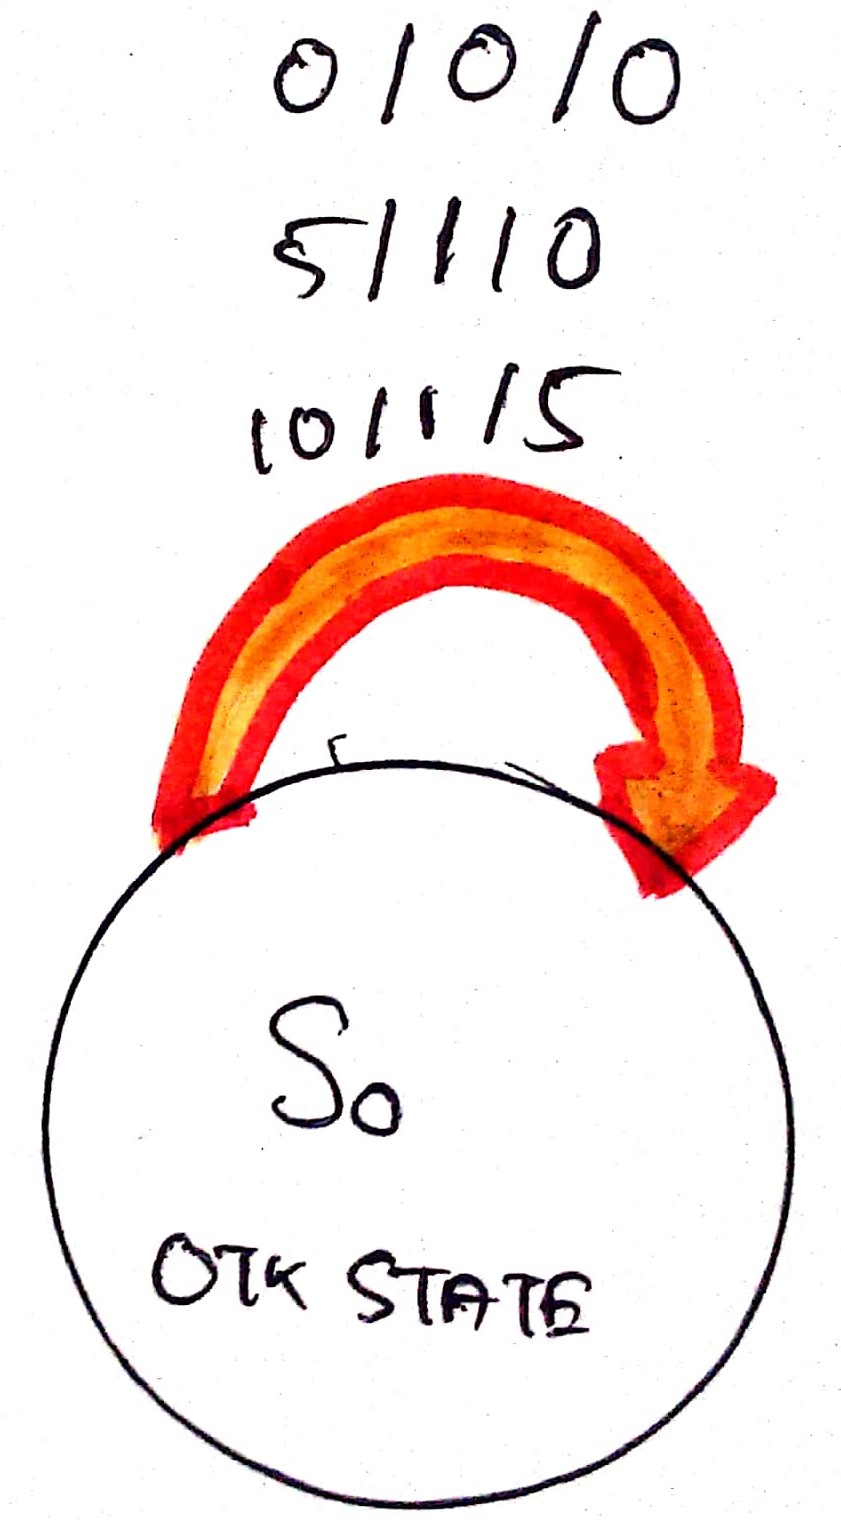 0/0/0
5/1/0
10/1/5
S0
0TK STATE